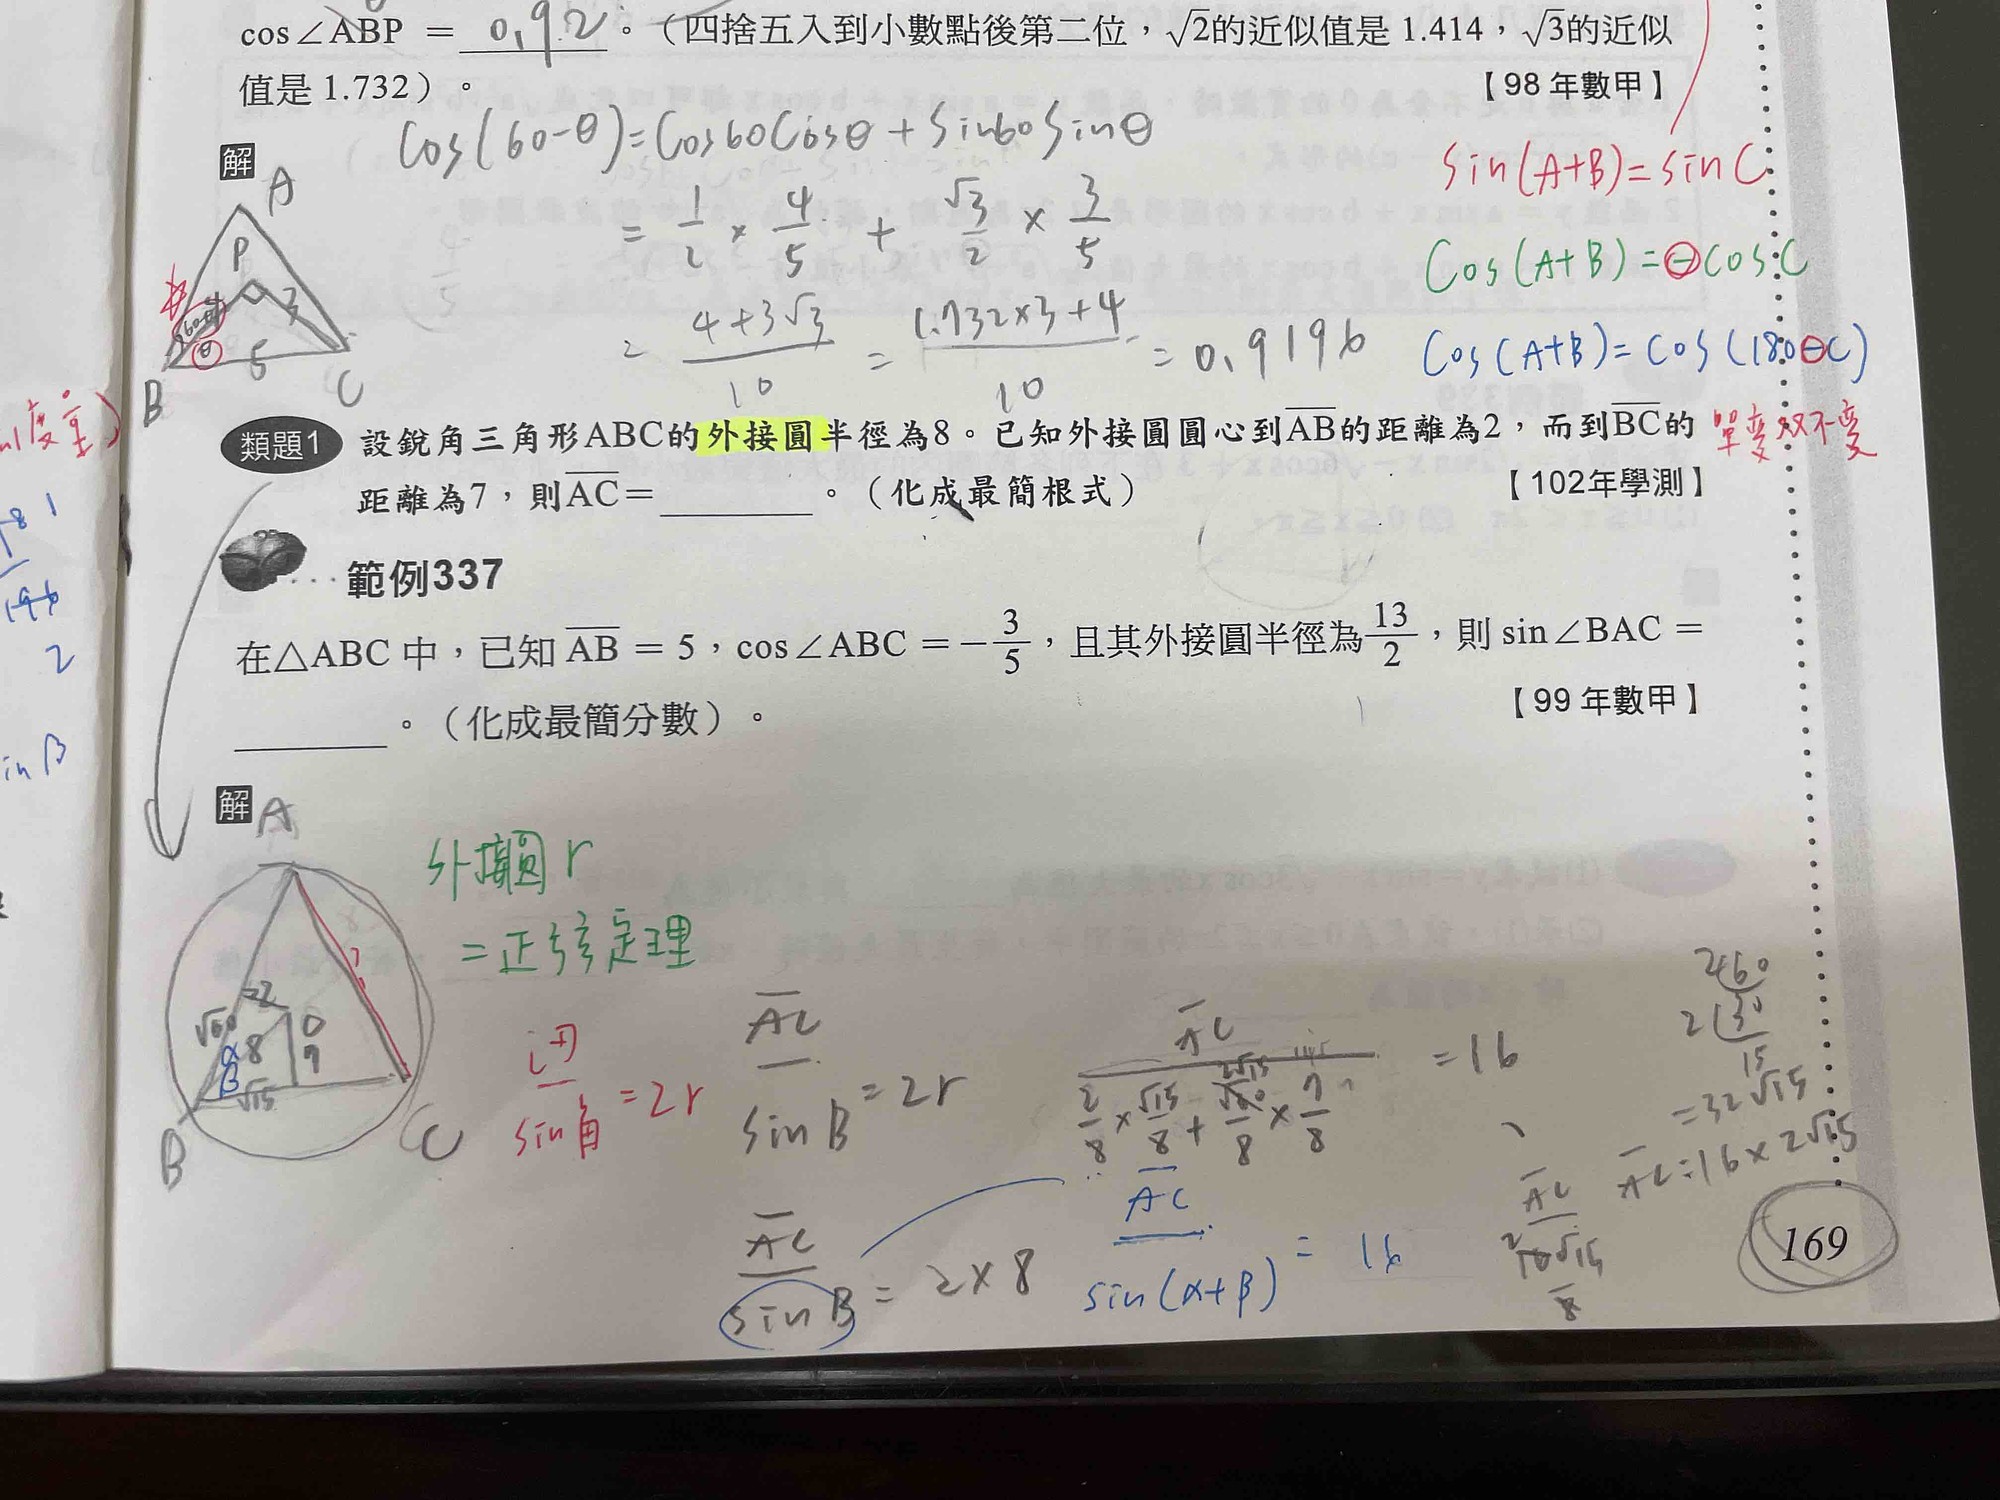 cos∠ABP = 0.92 。（四捨五入到小數點後第二位，√2的近似值是 1.414，√3的近似
值是 1.732）。
【98 年數甲】
cos(60-θ)=cos60cosθ+sin60sinθ
解
A
P
3
60-θ
θ
5
B
C
= 1/2 × 4/5 + √3/2 × 3/5
= (4+3√3)/10 = (1.732×3+4)/10 = 0.9196
sin(A+B)=sinC
cos(A+B)=⊖cosC
cos(A+B)=cos(180⊖C)
單變双不變
類題1 設銳角三角形ABC的外接圓半徑為8。已知外接圓圓心到AB的距離為2，而到BC的
距離為7，則AC=______。（化成最簡根式）
【102年學測】
範例337
在△ABC 中，已知 AB = 5，cos∠ABC = −3/5，且其外接圓半徑為13/2，則 sin∠BAC =
______。（化成最簡分數）。
【99 年數甲】
解
A
2
√60
α
8
O
7
β
√15
?
B
C
外接圓 r
=正弦定理
边/sin角 =2r
AC/sin B =2r
AC/sin B = 2×8
AC/(2/8 × √15/8 + 2√15 √60/8 × 7/8) =16
AC/sin(α+β) = 16
2 60
2 30
15
=32√15
AC=16×2√15
AC
2
16√15
8
169
in B
2